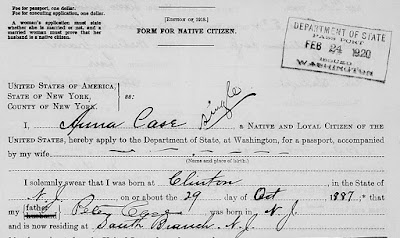 Fee for passport, one dollar.
Fee for executing application, one dollar.
A woman's application must state
whether she is married or not, and a
married woman must prove that her
husband is a native citizen.
[EDITION OF 1918.]
FORM FOR NATIVE CITIZEN.
DEPARTMENT OF STATE
PASSPORT
FEB 24 1920
ISSUED
WASHINGTON
UNITED STATES OF AMERICA,
STATE OF NEW YORK,
COUNTY OF NEW YORK.
ss:
single
I, Anna Case, A NATIVE AND LOYAL CITIZEN OF THE
UNITED STATES, hereby apply to the Department of State, at Washington, for a passport, accompanied
by my wife
(Name and place of birth.)
I solemnly swear that I was born at Clinton, in the State of
N.J., on or about the 29 day of Oct, 1887;* that
my father Peter was born in N.J.
and is now residing at South Branch N.J.